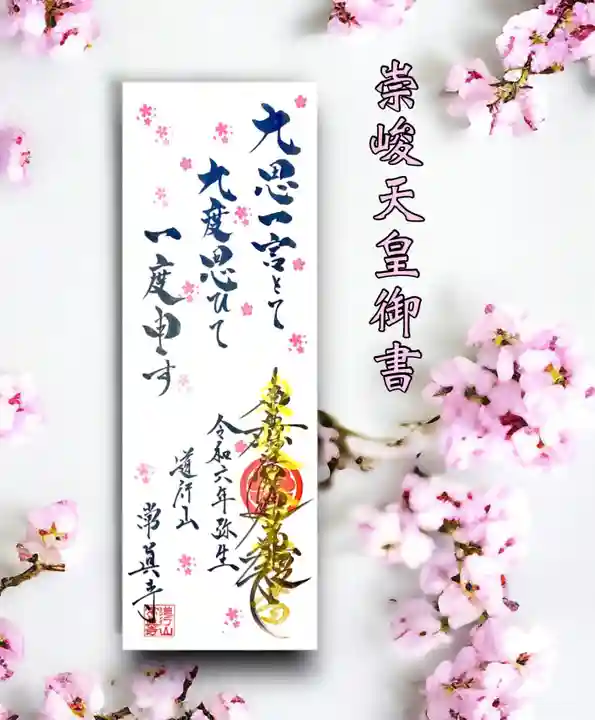 崇峻天皇御書
九思一言とて
九度思ひて
一度申す
南無妙法蓮華経
令和六年弥生
道行山
常真寺